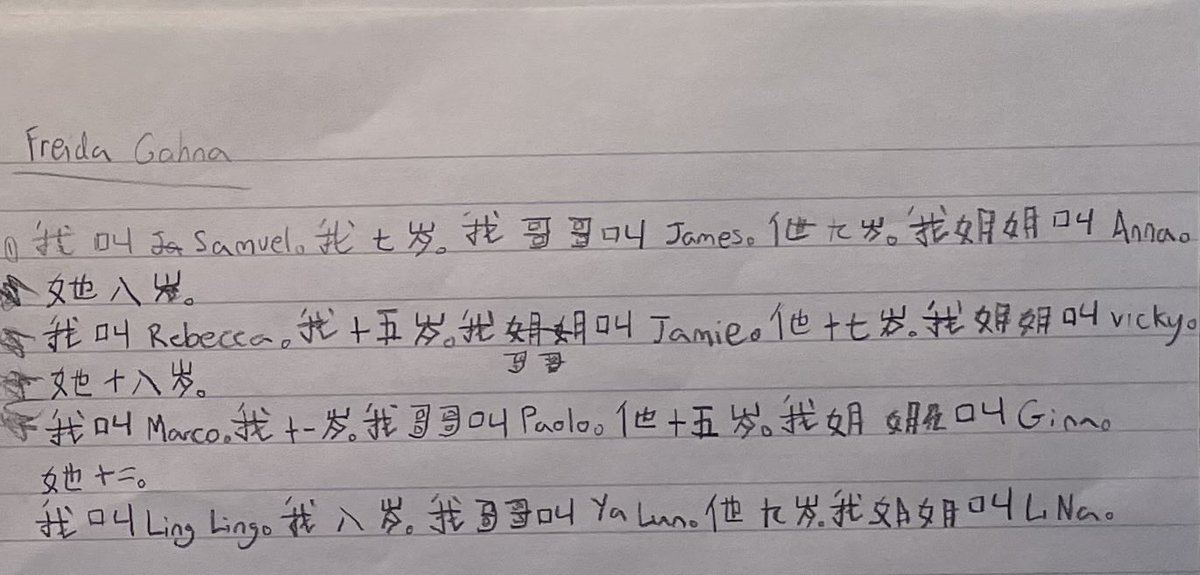 Freida Gahna
① 我叫 Samuel。我七岁。我哥哥叫 James。他九岁。我姐姐叫 Anna。
她八岁。
我叫 Rebecca。我十五岁。我哥哥叫 Jamie。他十七岁。我姐姐叫 vicky。
她十八岁。
我叫 Marco。我十一岁。我哥哥叫 Paolo。他十五岁。我姐姐叫 Ginna。
她十二。
我叫 Ling Ling。我八岁。我哥哥叫 Ya Lun。他九岁。我姐姐叫 Li Na。